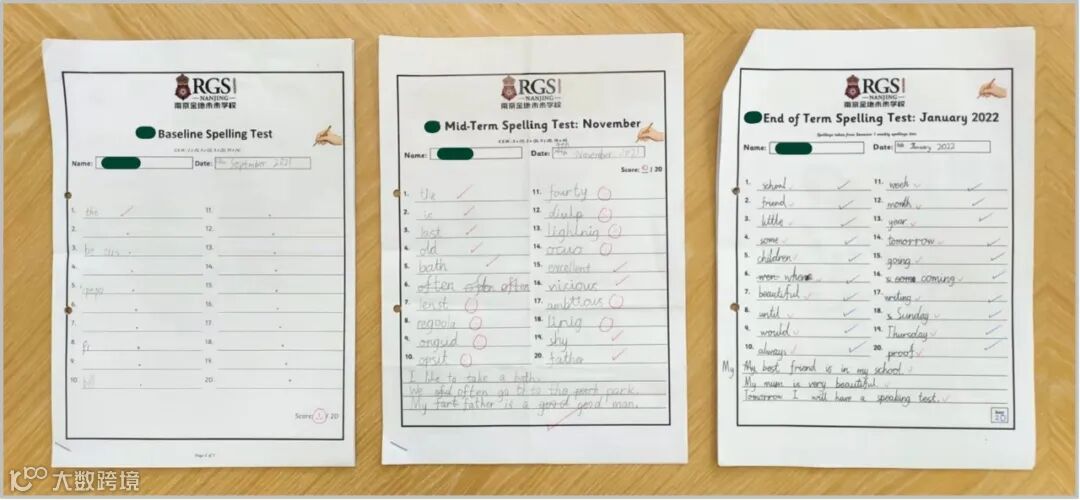 RGS
NANJING
南京金地未来学校
Baseline Spelling Test
Name:
Date: September 2021
1. the
2.
3.
4.
5. pepo
6.
7.
8.
9.
10.
11.
12.
13.
14.
15.
16.
17.
18.
19.
20.
Score: 1 / 20
RGS
NANJING
南京金地未来学校
Mid-Term Spelling Test: November
Name:
Date: November 2021
Score: / 20
1. the
2. is
3. last
4. old
5. bath
6. often often often
7. lenst
8. regoola
9. onguid
10. opsit
11. fourty
12. diulp
13. lighnig
14. ocus
15. excellent
16. vicious
17. ambttous
18. linig
19. shy
20. father
I like to take a bath.
We often go to the park.
My father is a good man.
RGS
NANJING
南京金地未来学校
End of Term Spelling Test: January 2022
Spellings taken from Semester 1 weekly spellings lists
Name:
Date: January 2022
1. school
2. friend
3. little
4. some
5. children
6. where
7. beautiful
8. until
9. would
10. always
11. week
12. month
13. year
14. tomorrow
15. going
16. coming
17. writing
18. Sunday
19. Thursday
20. proof
My My best friend is in my school.
My mum is very beautiful.
Tomorrow I will have a speaking test.
20
大数跨境